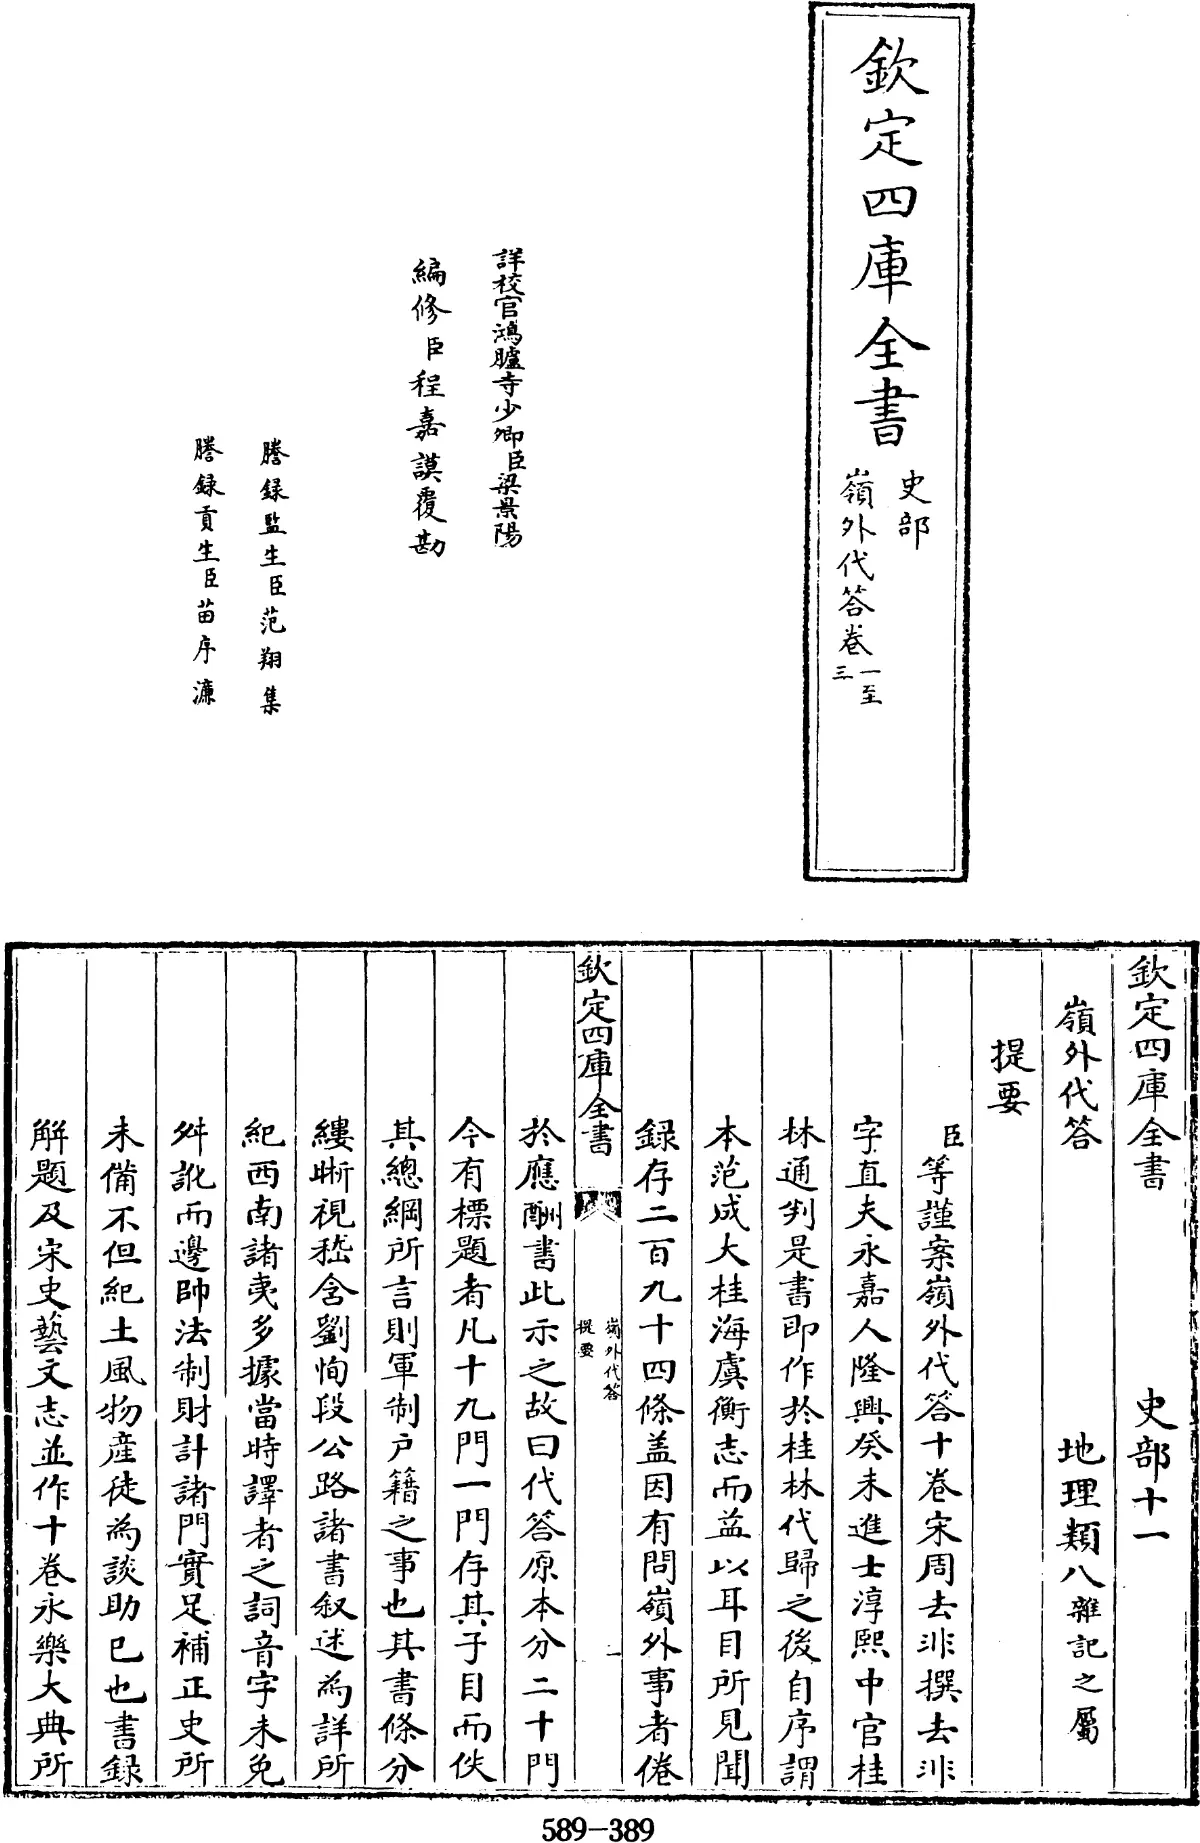 欽定四庫全書
史部
嶺外代答卷一至三
詳校官鴻臚寺少卿臣梁景陽
編修臣程嘉謨覆勘
謄録監生臣范翔集
謄録貢生臣苗序濂
欽定四庫全書 史部十一
嶺外代答 地理類八雜記之屬
提要
臣等謹案嶺外代答十卷宋周去非撰去非
字直夫永嘉人隆興癸未進士淳熙中官桂
林通判是書即作於桂林代歸之後自序謂
本范成大桂海虞衡志而益以耳目所見聞
録存二百九十四條盖因有問嶺外事者倦
欽定四庫全書
嶺外代答
提要
一
於應酬書此示之故曰代答原本分二十門
今有標題者凡十九門一門存其子目而佚
其總綱所言則軍制户籍之事也其書條分
縷晣視嵇含劉恂段公路諸書叙述為詳所
紀西南諸夷多據當時譯者之詞音字未免
舛訛而邊帥法制財計諸門實足補正史所
未備不但紀土風物產徒為談助已也書録
解題及宋史藝文志並作十卷永樂大典所
589-389